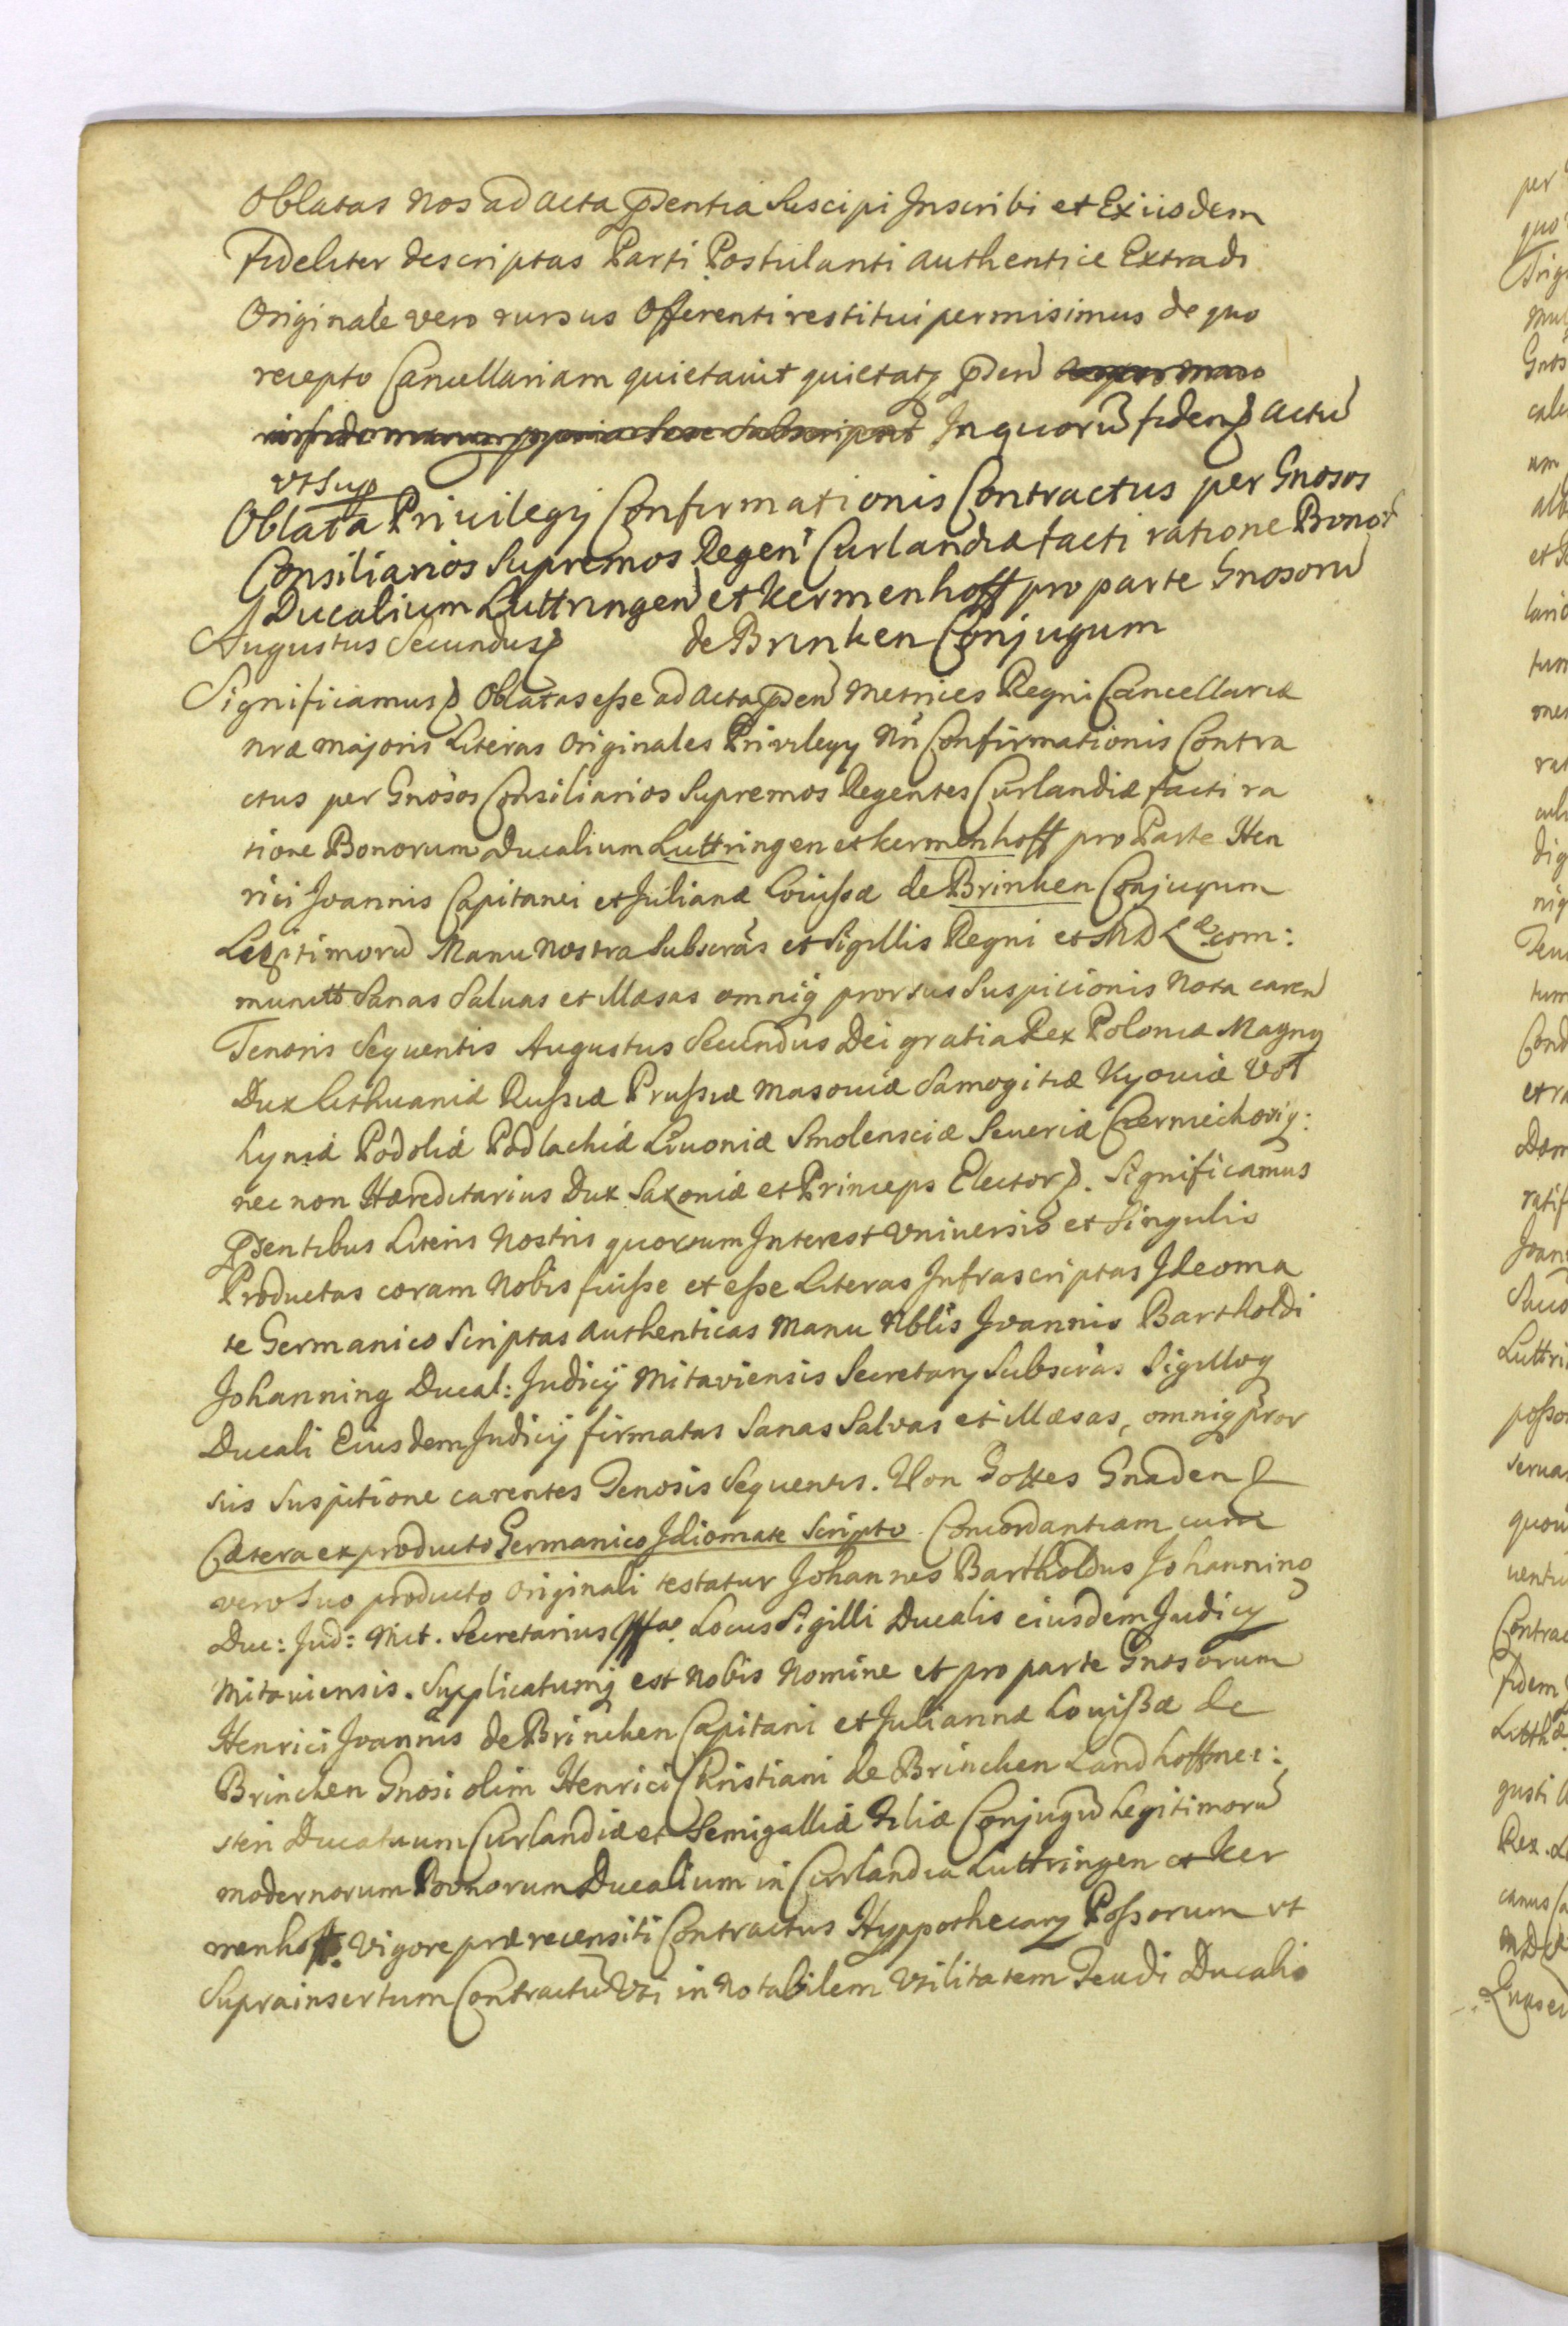 Oblatas Nos ad acta pñentia Suscipi Inscribi et Ex iisdem
Fideliter descriptas Parti Postulanti authentice Extradi
Originale vero rursus Offerenti restitui permisimus de quo
recepto Cancellariam quietavit quietatq pñen
In quorũ fidem actũ
vt Sup
Oblata Privilegij Confirmationis Contractus per Gnosos
Consiliarios Supremos Regen Curlandiæ facti ratione Bonor
Ducalium Luttringen et Kermenhoff pro parte Gnosorũ
Augustus Secundus de Brinken Conjugum
Significamus Oblatas esse ad acta pñen Metrices Regni Cancellariæ
nræ majoris Literas Originales Privilegy Nri Confirmationis Contra
ctus per Gnosos Consiliarios Supremos Regentes Curlandiæ facti ra
tione Bonorum Ducalium Luttringen et Kermenhoff pro Parte Hen
rici Joannis Capitanei et Julianæ Louissæ de Brinken Conjugum
Legitimorũ Manu Nostra Subscras et Sigillis Regni et M D L com:
munitt Sanas Salvas et Illæsas omniq prorsus Suspicionis Nota caren
Tenoris Sequentis Augustus Secundus Dei gratia Rex Poloniæ Magnq
Dux Lithuaniæ Russiæ Prussiæ Masoviæ Samogitiæ Kyoviæ Vol
hyniæ Podoliæ Podlachiæ Livoniæ Smolensciæ Severiæ Czerniechoviq:
nec non Hæreditarius Dux Saxoniæ et Princeps Elector. Significamus
pñentibus Literis Nostris quorum Interest Universis et Singulis
Productas coram Nobis fuisse et esse Literas Infrascriptas Ideoma
te Germanico Scriptas authenticas Manu Nblis Joannis Bartholdi
Johanning Ducal: Judicij Mitaviensis Secretary Subscras Sigilloq
Ducali Eiusdem Judicij firmatas Sanas Salvas et Illæsas, omniq pror
sus Suspitione carentes Tenoris Sequentis. Von Gottes Gnaden
Cætera ex producto Germanico Idiomate Scripto Concordantiam cum
vero Suo producto Originali testatur Johannes Bartholdus Johanning
Duc: Jud: Mit. Secretarius Locus Sigilli Ducalis eiusdem Judicy
Mitaviensis. Supplicatumq est Nobis Nomine et pro parte Gnosorum
Henrici Joannis de Brincken Capitani et Juliannæ Louißæ de
Brincken Gnosi olim Henrici Christiani de Brincken Landhoffmei:
steri Ducatuum Curlandiæ et Semigalliæ Filiæ Conjugũ Legitimorũ
modernorum Bonorum Ducalium in Curlandia Luttringen et Ker
menhoff. Vigore præ recensiti Contractus Hyppothecary Possorum vt
Suprainsertum Contractũ Vti in Notabilem Vtilitatem Feudi Ducalis